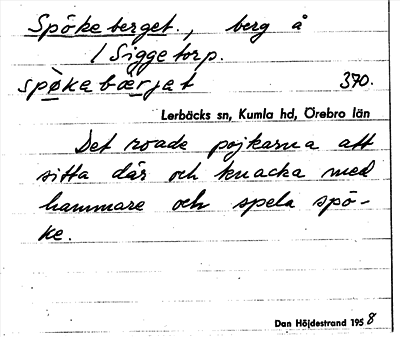 Spökeberget., berg å
/ Siggetorp.
spø̀kabæ̀rjat 370.
Lerbäcks sn, Kumla hd, Örebro län
Det roade pojkarna att
sitta där och knacka med
hammare och spela spö-
ke.
Dan Höjdestrand 1958